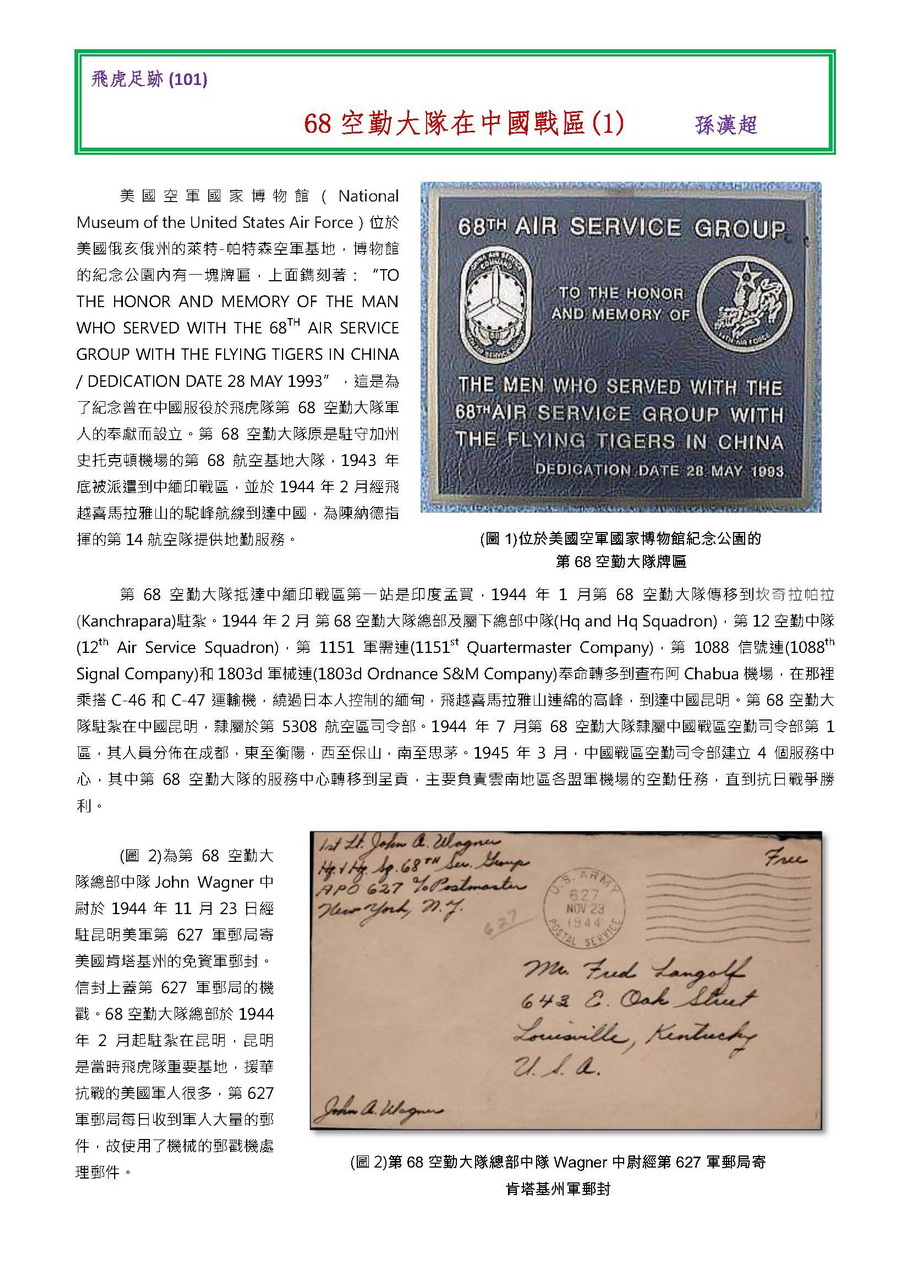 飛虎足跡 (101)
68 空勤大隊在中國戰區(1) 孫漢超
美國空軍國家博物館（ National
Museum of the United States Air Force）位於
美國俄亥俄州的萊特-帕特森空軍基地，博物館
的紀念公園內有一塊牌匾，上面鐫刻著：“TO
THE HONOR AND MEMORY OF THE MAN
WHO SERVED WITH THE 68TH AIR SERVICE
GROUP WITH THE FLYING TIGERS IN CHINA
/ DEDICATION DATE 28 MAY 1993”，這是為
了紀念曾在中國服役於飛虎隊第 68 空勤大隊軍
人的奉獻而設立。第 68 空勤大隊原是駐守加州
史托克頓機場的第 68 航空基地大隊，1943 年
底被派遣到中緬印戰區，並於 1944 年 2 月經飛
越喜馬拉雅山的駝峰航線到達中國，為陳納德指
揮的第 14 航空隊提供地勤服務。
68TH AIR SERVICE GROUP
CHINA AIR SERVICE
COMMAND
TO THE HONOR
AND MEMORY OF
14TH AIR FORCE
THE MEN WHO SERVED WITH THE
68TH AIR SERVICE GROUP WITH
THE FLYING TIGERS IN CHINA
DEDICATION DATE 28 MAY 1993
(圖 1)位於美國空軍國家博物館紀念公園的
第 68 空勤大隊牌匾
第 68 空勤大隊抵達中緬印戰區第一站是印度孟買，1944 年 1 月第 68 空勤大隊傳移到坎奇拉帕拉
(Kanchrapara)駐紮。1944 年 2 月 第 68 空勤大隊總部及屬下總部中隊(Hq and Hq Squadron)，第 12 空勤中隊
(12th Air Service Squadron)，第 1151 軍需連(1151st Quartermaster Company)，第 1088 信號連(1088th
Signal Company)和 1803d 軍械連(1803d Ordnance S&M Company)奉命轉多到查布阿 Chabua 機場，在那裡
乘搭 C-46 和 C-47 運輸機，繞過日本人控制的緬甸，飛越喜馬拉雅山連綿的高峰，到達中國昆明。第 68 空勤大
隊駐紮在中國昆明，隸屬於第 5308 航空區司令部。1944 年 7 月第 68 空勤大隊隸屬中國戰區空勤司令部第 1
區，其人員分佈在成都，東至衡陽，西至保山，南至思茅。1945 年 3 月，中國戰區空勤司令部建立 4 個服務中
心，其中第 68 空勤大隊的服務中心轉移到呈貢，主要負責雲南地區各盟軍機場的空勤任務，直到抗日戰爭勝
利。
(圖 2)為第 68 空勤大
隊總部中隊 John Wagner 中
尉於 1944 年 11 月 23 日經
駐昆明美軍第 627 軍郵局寄
美國肯塔基州的免資軍郵封。
信封上蓋第 627 軍郵局的機
戳。68 空勤大隊總部於 1944
年 2 月起駐紮在昆明，昆明
是當時飛虎隊重要基地，援華
抗戰的美國軍人很多，第 627
軍郵局每日收到軍人大量的郵
件，故使用了機械的郵戳機處
理郵件。
1st Lt. John A. Wagner
Hq. & Hq. Sq. 68TH Ser. Group
APO 627 c/o Postmaster
New York, N.Y.
627
U.S. ARMY
627
NOV 23
1944
POSTAL SERVICE
Free
Mr. Fred Langolf
642 E. Oak Street
Louisville, Kentucky
U. S. A.
John A. Wagner
(圖 2)第 68 空勤大隊總部中隊 Wagner 中尉經第 627 軍郵局寄
肯塔基州軍郵封